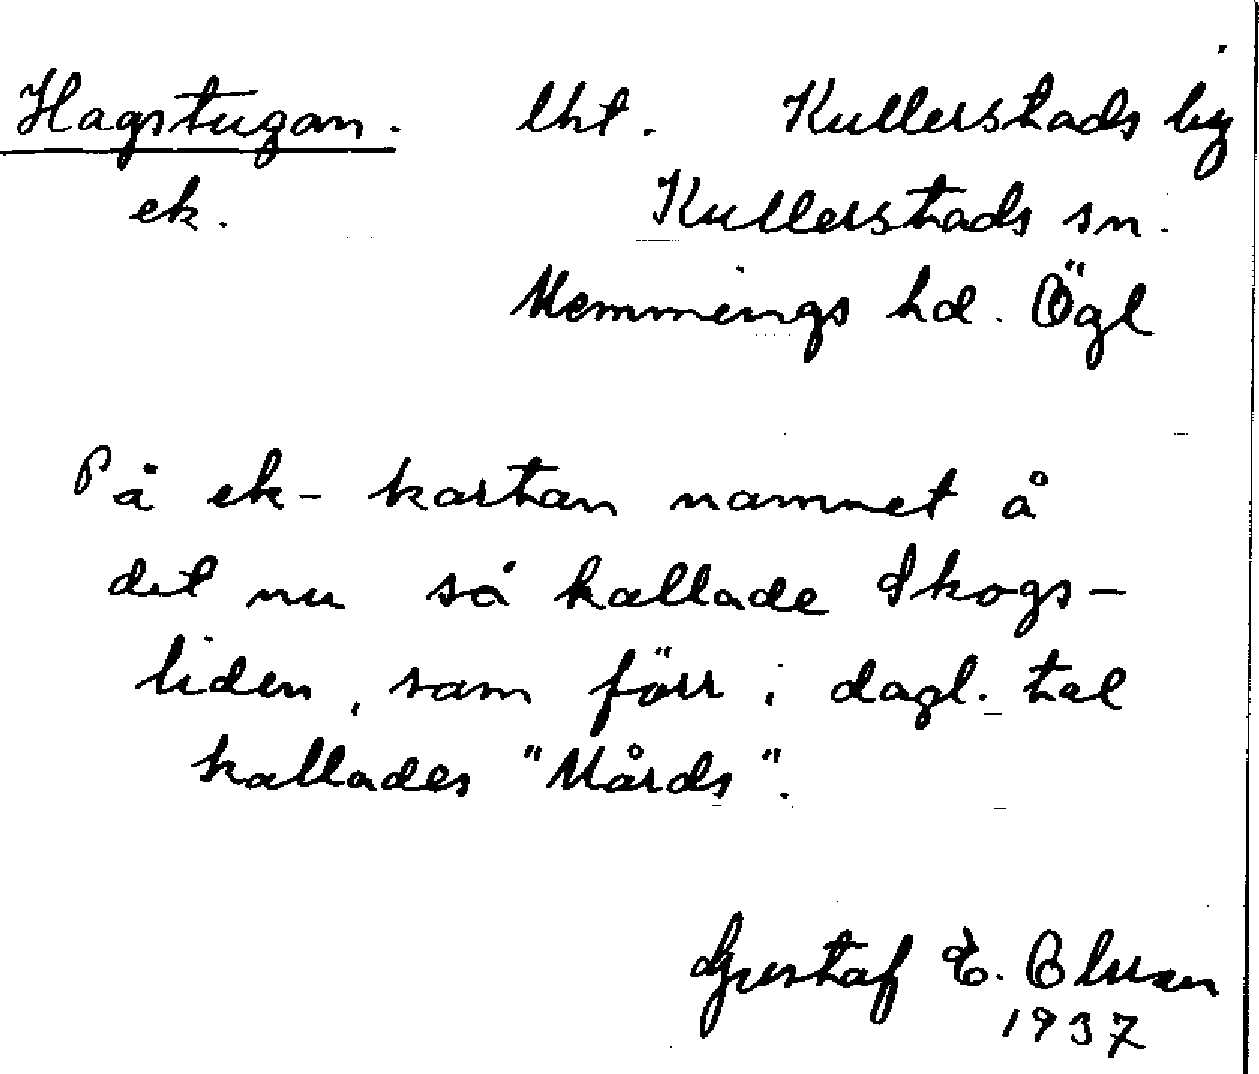 Hagstugan. lht. Kullerstads by
ek. Kullerstads sn.
Memmings hd. Ögl
På ek-kartan namnet å
det nu så kallade Skogs-
liden, som förr i dagl. tal
kallades "Mårds".
Gustaf E. Olsson
1937